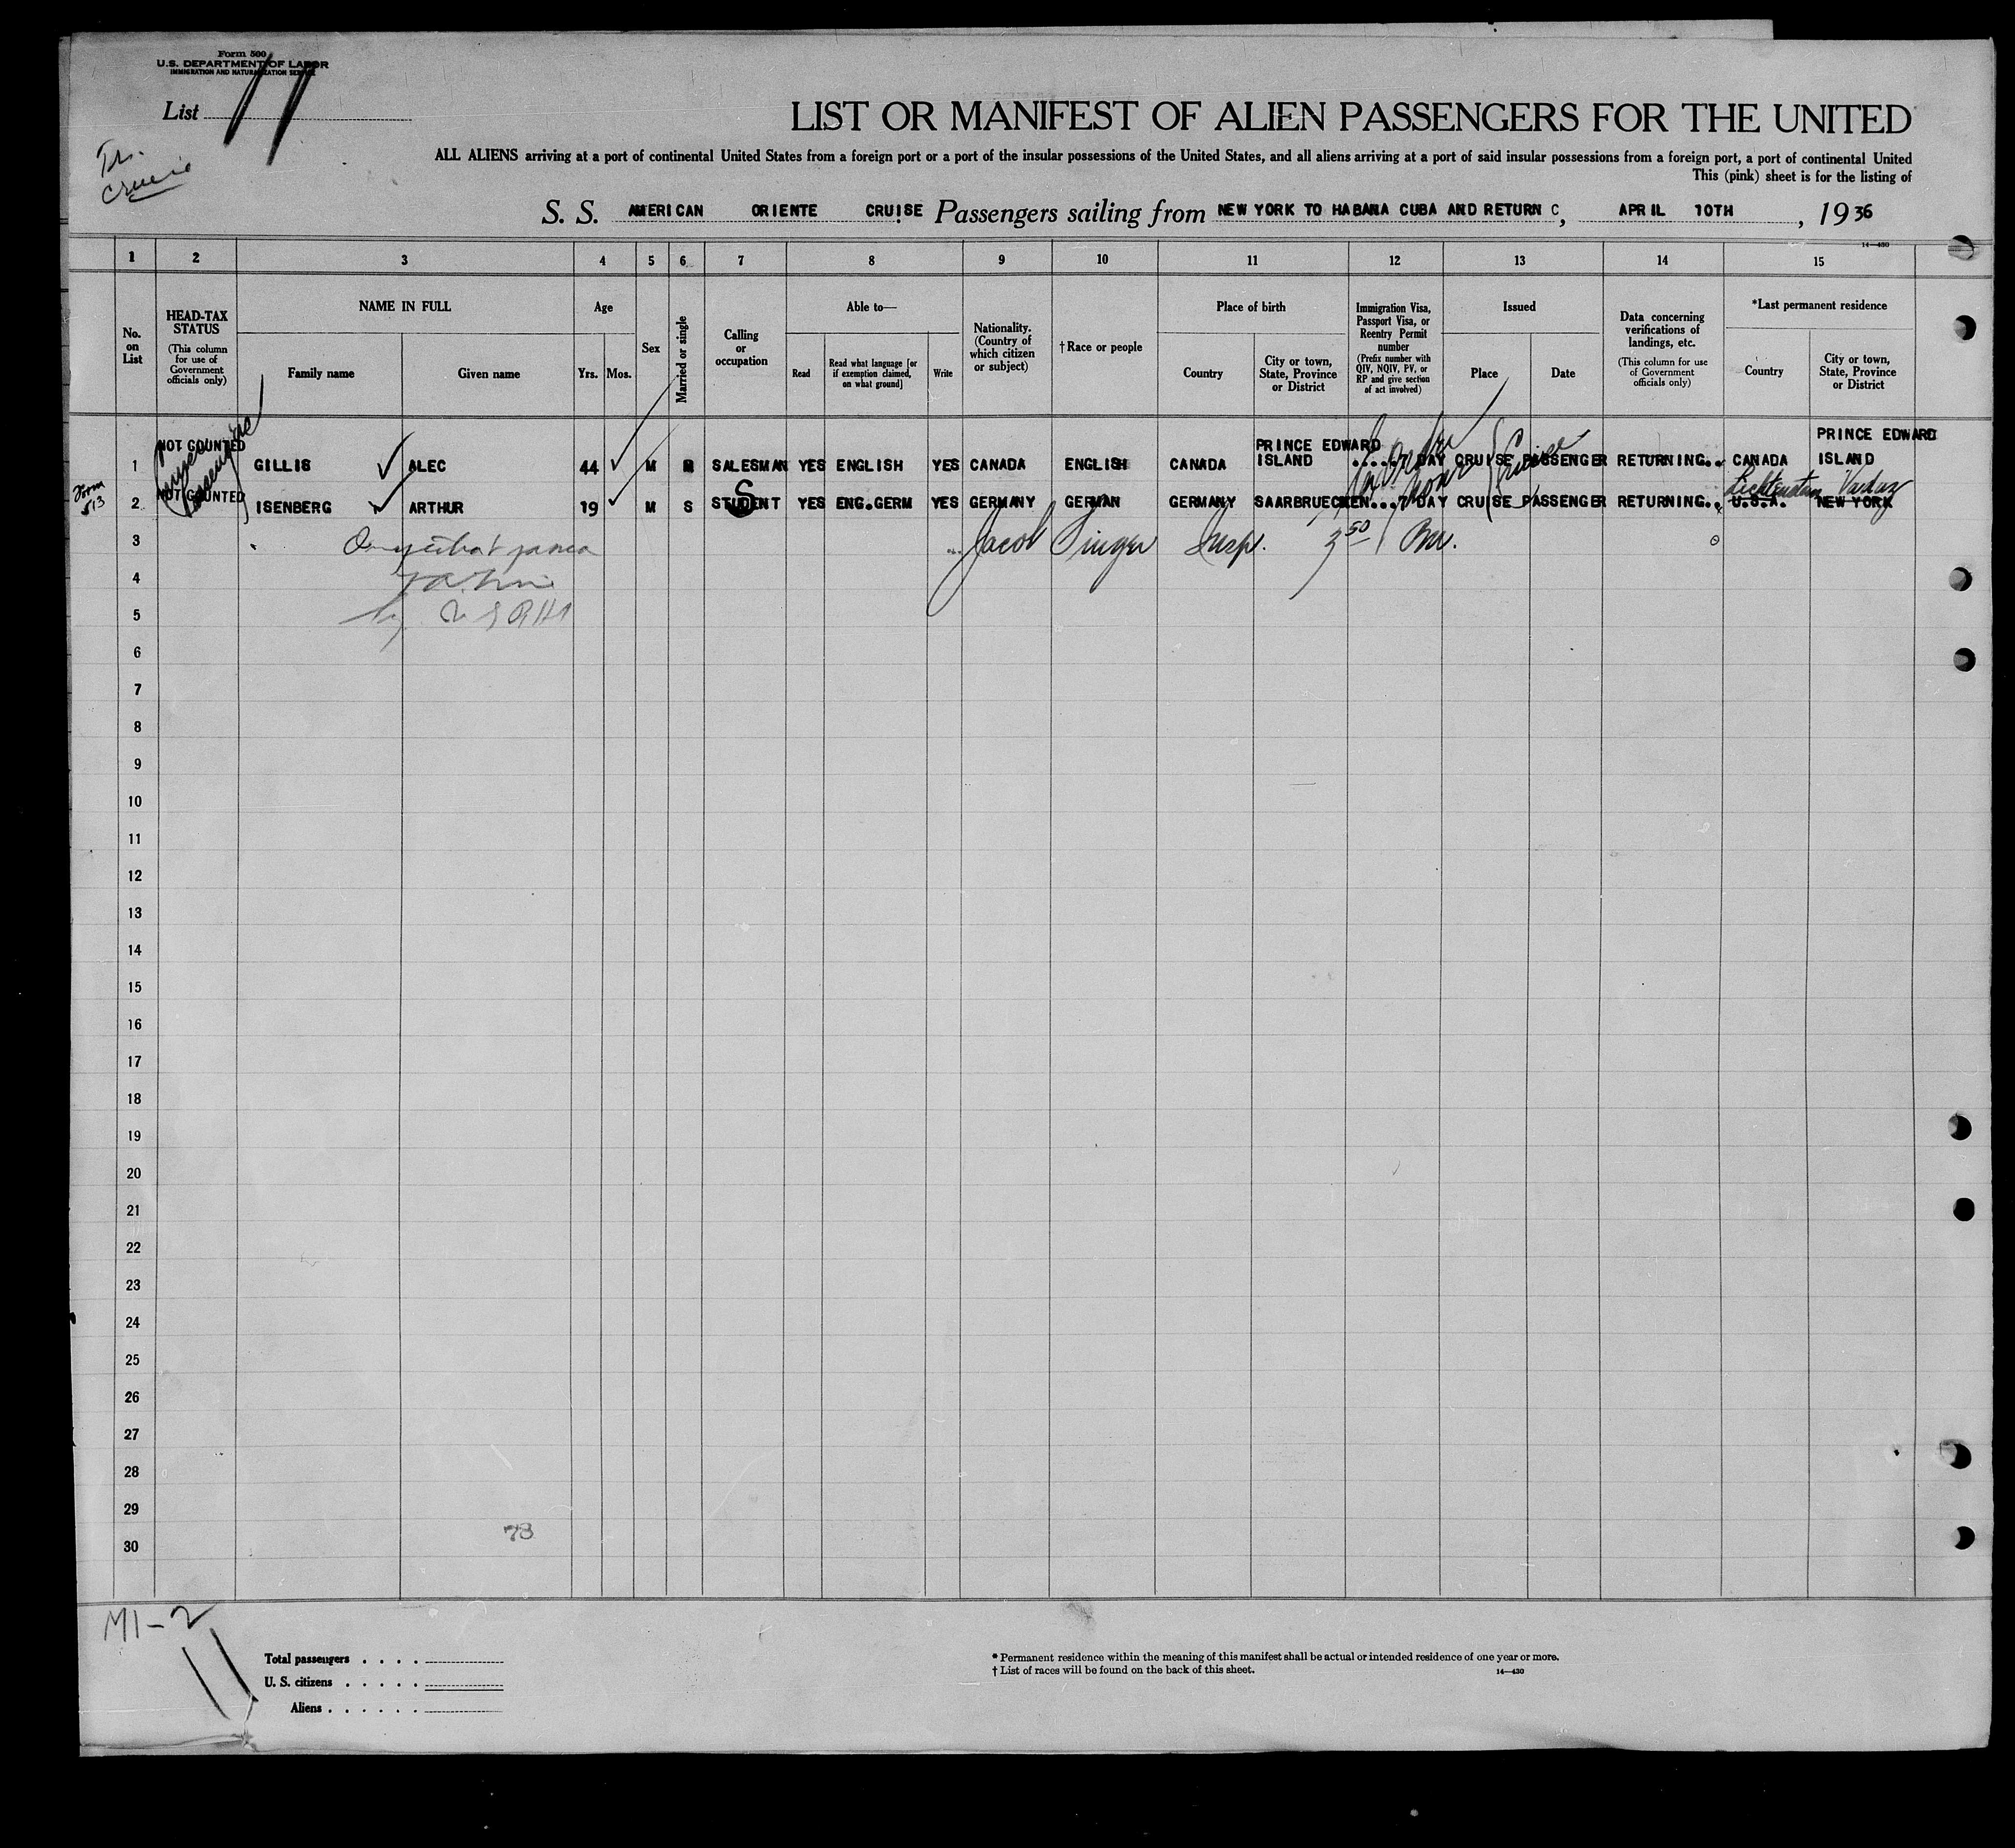 Form 500
U.S. DEPARTMENT OF LABOR
IMMIGRATION AND NATURALIZATION SERVICE
List 11
LIST OR MANIFEST OF ALIEN PASSENGERS FOR THE UNITED
ALL ALIENS arriving at a port of continental United States from a foreign port or a port of the insular possessions of the United States, and all aliens arriving at a port of said insular possessions from a foreign port, a port of continental United
This (pink) sheet is for the listing of
S. S. AMERICAN ORIENTE CRUISE Passengers sailing from NEW YORK TO HABANA CUBA AND RETURN C, APRIL 10TH, 1936
14—430
1 2 3 4 5 6 7 8 9 10 11 12 13 14 15
No. on List
HEAD-TAX STATUS
(This column for use of Government officials only)
NAME IN FULL
Family name
Given name
Age
Yrs. Mos.
Sex
Married or single
Calling or occupation
Able to—
Read
Read what language [or if exemption claimed, on what ground]
Write
Nationality. (Country of which citizen or subject)
†Race or people
Place of birth
Country
City or town, State, Province or District
Immigration Visa, Passport Visa, or Reentry Permit number
(Prefix number with QIV, NQIV, PV, or RP and give section of act involved)
Issued
Place
Date
Data concerning verifications of landings, etc.
(This column for use of Government officials only)
*Last permanent residence
Country
City or town, State, Province or District
NOT COUNTED
PRINCE EDWARD PRINCE EDWARD
1 GILLIS ALEC 44 M M SALESMAN YES ENGLISH YES CANADA ENGLISH CANADA ISLAND ......7 DAY CRUISE PASSENGER RETURNING.. CANADA ISLAND
Form 513
NOT COUNTED
Liechtenstein Vaduz
2 ISENBERG ARTHUR 19 M S STUDENT YES ENG.GERM YES GERMANY GERMAN GERMANY SAARBRUECKEN...7 DAY CRUISE PASSENGER RETURNING.. U.S.A. NEW YORK
3 Jacob Singer Insp. 3 50
4
5
6
7
8
9
10
11
12
13
14
15
16
17
18
19
20
21
22
23
24
25
26
27
28
29
73
30
M1-2
11
Total passengers . . . .
U. S. citizens . . . . .
Aliens . . . . . .
* Permanent residence within the meaning of this manifest shall be actual or intended residence of one year or more.
† List of races will be found on the back of this sheet.
14—430